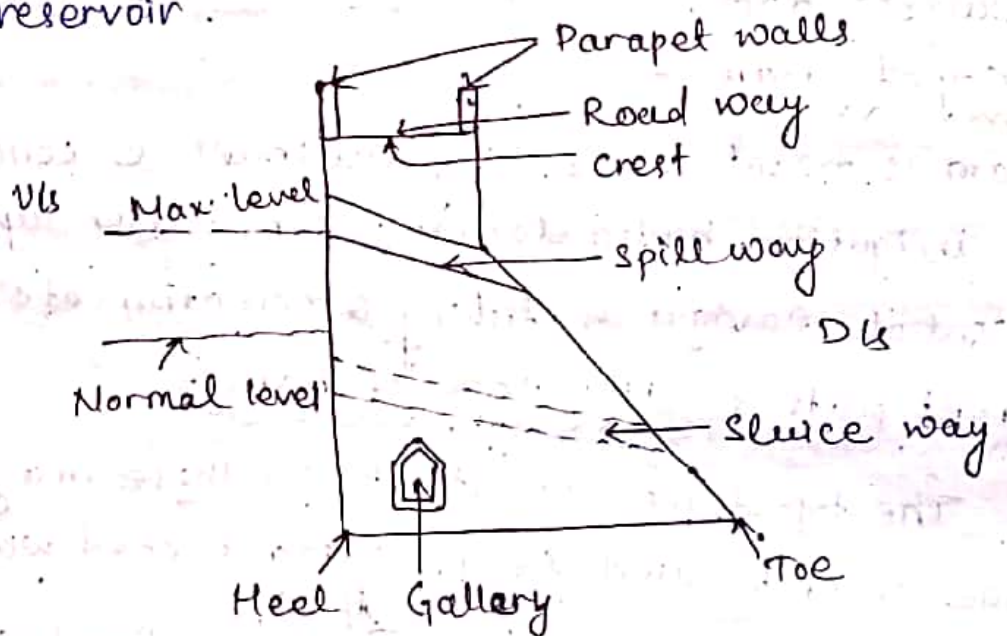 reservoir.
Parapet walls
Road way
crest
U/s
Max. level
spill way
D/s
Normal level
Sluice way
Toe
Heel
Gallary